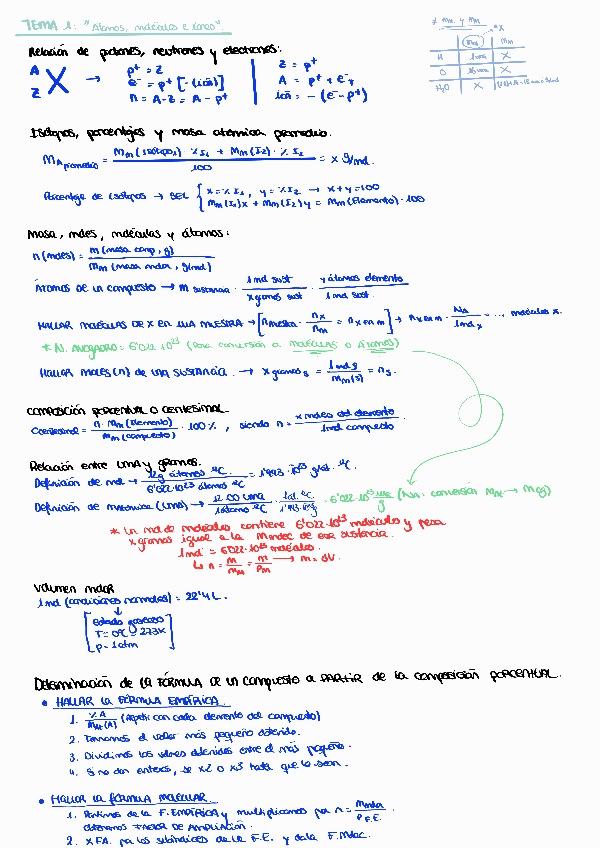 TEMA 1: "Átomos, moléculas e iones"
≠ MA y Mm
MA Mm
H 1 uma X
O 16 uma X
H₂O X
Relación de protones, neutrones y electrones:
A
Z X → p⁺ = Z
e⁻ = p⁺ [-(ión)]
n = A-Z = A - p⁺
Z = p⁺
A = p⁺ +
ión = - (e⁻ - p⁺)
Isótopos, porcentajes y masa atómica promedio.
MA promedio = Mm (Isótopo₁) · % I₁ + Mm (I₂) · % I₂ / 100 = x g/mol.
Porcentaje de isótopos → SEL { x = % I₁, y = % I₂ → x+y=100
Mm(I₁)x + Mm(I₂)y = Mm(Elemento)·100
Masa, moles, moléculas y átomos:
n (moles) = m (masa comp, g) / Mm (masa molar, g/mol)
Átomos de un compuesto → m sustancia · 1 mol sust / x gramos sust · y átomos elemento / 1 mol sust.
HALLAR MOLÉCULAS DE X EN UNA MUESTRA → [n muestra · nx / nm = n x en m] → n x en m · NA / 1 mol x = ... moléculas x.
* N. AVOGADRO = 6'022·10²³ (para conversión a moléculas o átomos)
HALLAR MOLES (n) DE UNA SUSTANCIA. → x gramos s = 1 mol s / Mm(s) = n s.
COMPOSICIÓN PORCENTUAL O CENTESIMAL.
Ccentesimal = n · Mm (Elemento) / Mm (compuesto) · 100 % , siendo n = x moles del elemento / 1 mol compuesto
Relación entre UMA y gramos.
Definición de mol → 12g átomos ¹²C / 6'022·10²³ átomos ¹²C = 1'993·10⁻²³ g/at. ¹²C.
Definición de masa atómica (UMA) → 12'00 UMA / 1 átomo ¹²C · 1at. ¹²C / 1'993·10⁻²³g · 6'022·10²³ uma / g (NA. conversión
* Un mol de moléculas contiene 6'022·10²³ moléculas y pesa
x gramos igual a la M molec de esa sustancia.
1mol = 6'022·10²³ moléculas.
↳ n = m / Mm = m / Pm → m = dV
Volumen molar
1 mol (condiciones normales) = 22'4 L.
↓
[Estado gaseoso
T = 0°C = 273K
p = 1 atm]
Determinación de la FÓRMULA de un compuesto a PARTIR de la COMPOSICIÓN PORCENTUAL.
• HALLAR LA FÓRMULA EMPÍRICA.
1. % A / MA (A) (Repetir con cada elemento del compuesto)
2. Tomamos el valor más pequeño obtenido.
3. Dividimos los valores obtenidos entre el más pequeño.
4. Si no dan enteros, se x2 o x3 hasta que lo sean.
• HALLAR LA FÓRMULA MOLECULAR
1. Partimos de la F. EMPÍRICA y multiplicamos por n = M molar / P F.E. .
obtenemos FACTOR DE AMPLIACIÓN.
2. x FA. por los subíndices de la F.E. y da la F. Molec.